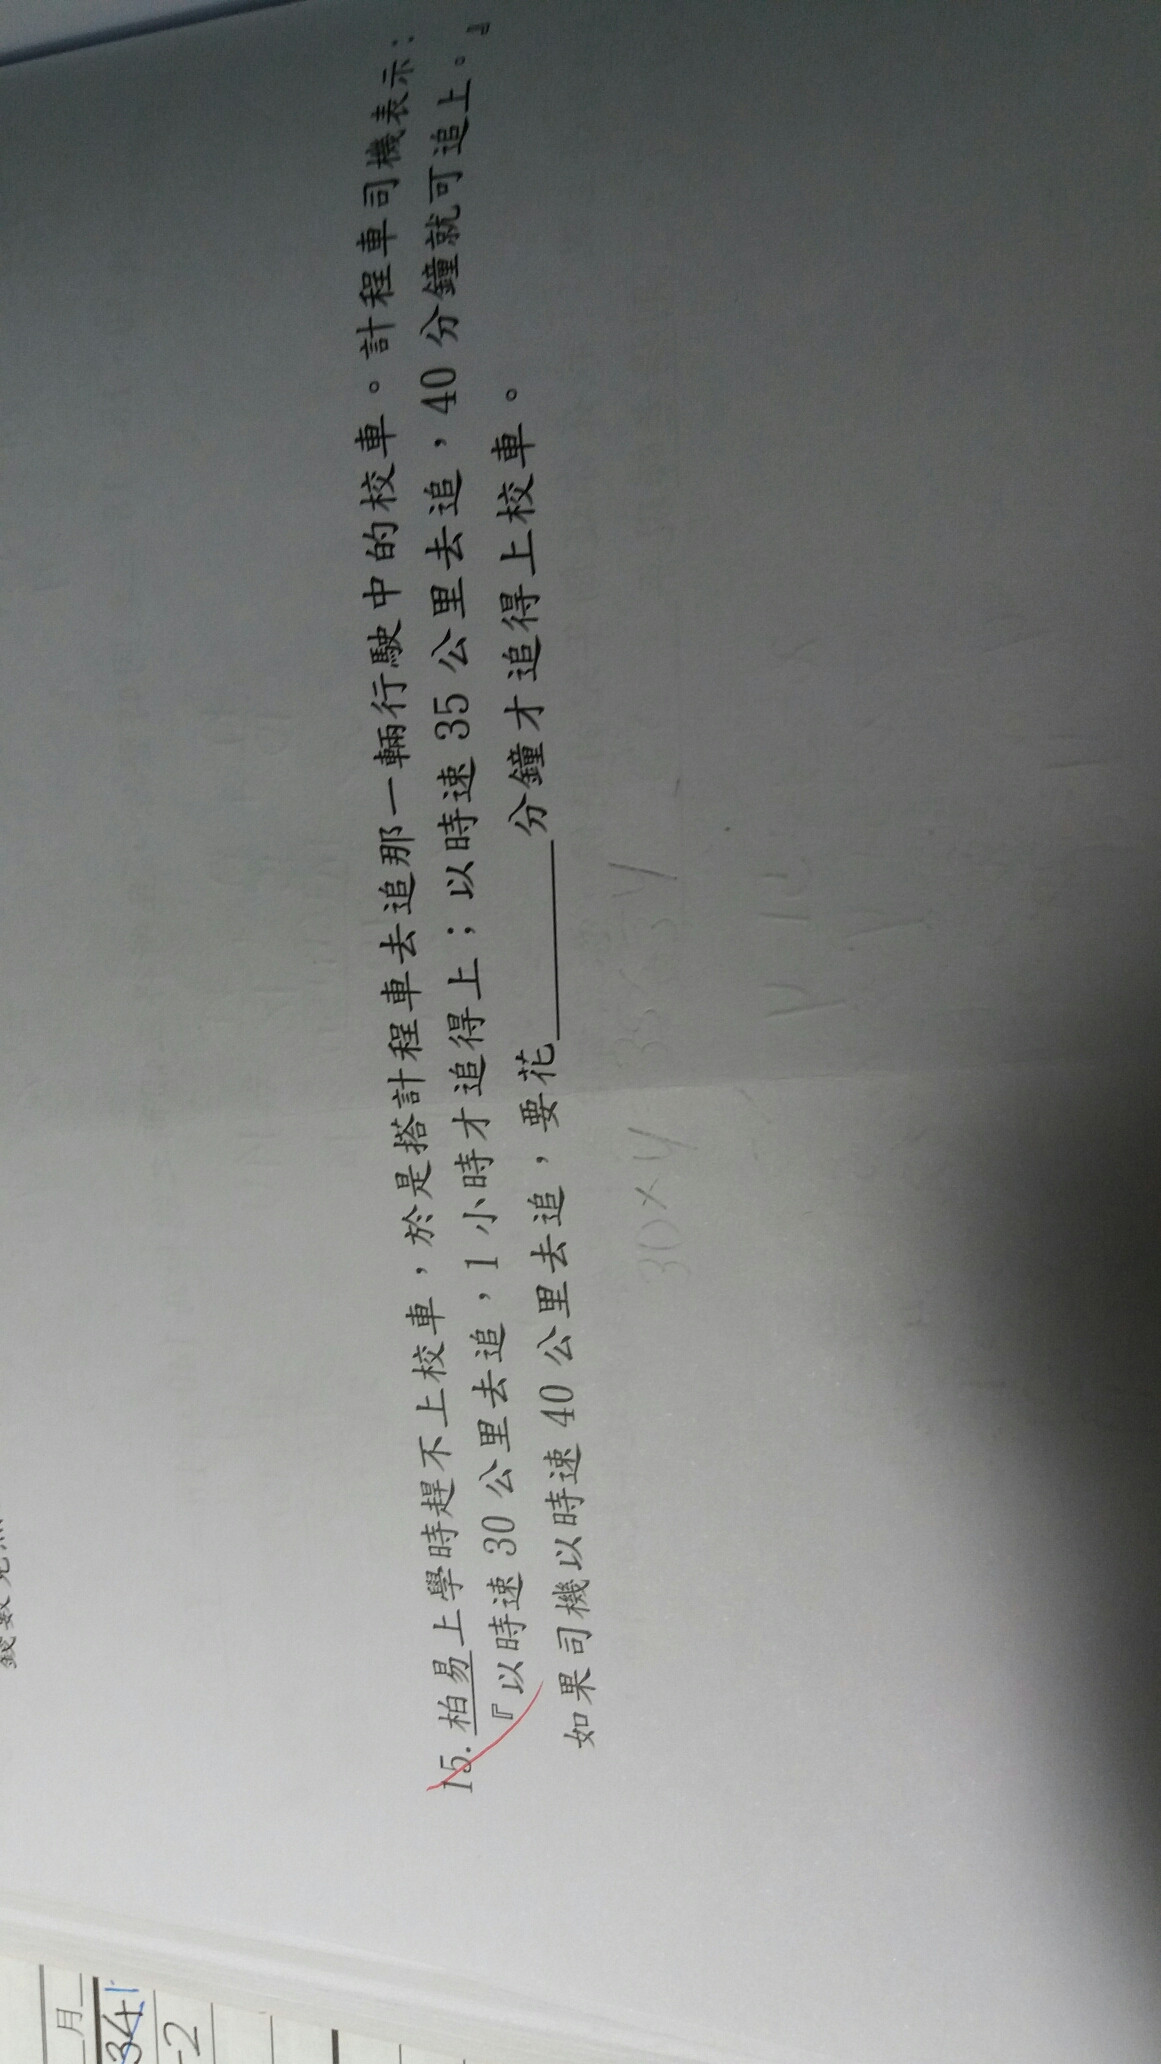 15. 柏易上學時趕不上校車，於是搭計程車去追那一輛行駛中的校車。計程車司機表示：
『以時速 30 公里去追，1 小時才追得上；以時速 35 公里去追，40 分鐘就可追上。』
如果司機以時速 40 公里去追，要花______分鐘才追得上校車。
30×y
月
34+1
-2